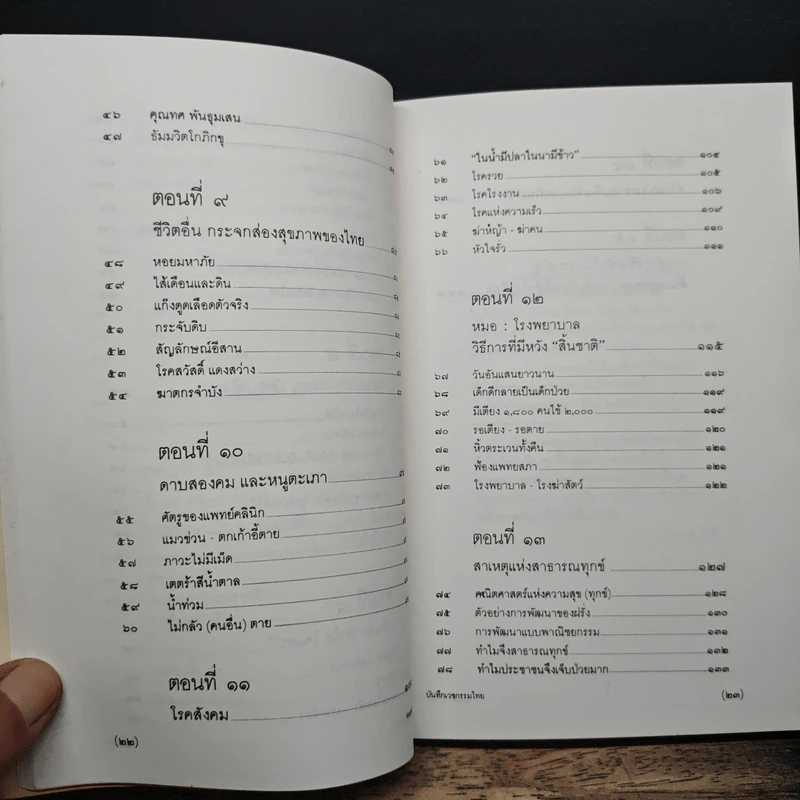 ๔๖ คุณทศ พันธุมเสน
๔๗ ธัมมวิตโกภิกขุ
ตอนที่ ๙
ชีวิตอื่น กระจกส่องสุขภาพของไทย
๔๘ หอยมหาภัย
๔๙ ไส้เดือนและดิน
๕๐ แก๊งดูดเลือดตัวจริง
๕๑ กระจับดิบ
๕๒ สัญลักษณ์อีสาน
๕๓ โรคสวัสดิ์ แดงสว่าง
๕๔ ฆาตกรจำบัง
ตอนที่ ๑๐
ดาบสองคม และหนูตะเภา
๕๕ ศัตรูของแพทย์คลินิก
๕๖ แมวข่วน - ตกเก้าอี้ตาย
๕๗ ภาวะไม่มีเม็ด
๕๘ เตตร้าสีน้ำตาล
๕๙ น้ำท่วม
๖๐ ไม่กลัว (คนอื่น) ตาย
ตอนที่ ๑๑
โรคสังคม
(๒๒)
๖๑ "ในน้ำมีปลาในนามีข้าว" ๑๐๕
๖๒ โรครวย ๑๐๕
๖๓ โรคโรงงาน ๑๐๖
๖๔ โรคแห่งความเร็ว ๑๐๙
๖๕ ฆ่าหญ้า - ฆ่าคน ๑๑๐
๖๖ หัวใจรั่ว ๑๑๑
ตอนที่ ๑๒
หมอ : โรงพยาบาล
วิธีการที่มีหวัง "สิ้นชาติ" ๑๑๕
๖๗ วันอันแสนยาวนาน ๑๑๖
๖๘ เด็กดีกลายเป็นเด็กป่วย ๑๑๙
๖๙ มีเตียง ๑,๘๐๐ คนใช้ ๒,๐๐๐ ๑๑๙
๗๐ รอเตียง - รอตาย ๑๒๐
๗๑ หิ้วตระเวนทั้งคืน ๑๒๑
๗๒ ฟ้องแพทยสภา ๑๒๑
๗๓ โรงพยาบาล - โรงฆ่าสัตว์ ๑๒๒
ตอนที่ ๑๓
สาเหตุแห่งสาธารณทุกข์ ๑๒๗
๗๔ คณิตศาสตร์แห่งความสุข (ทุกข์) ๑๒๘
๗๕ ตัวอย่างการพัฒนาของฝรั่ง ๑๓๐
๗๖ การพัฒนาแบบพาณิชยกรรม ๑๓๑
๗๗ ทำไมจึงสาธารณทุกข์ ๑๓๒
๗๘ ทำไมประชาชนจึงเจ็บป่วยมาก ๑๓๓
บันทึกเวชกรรมไทย (๒๓)